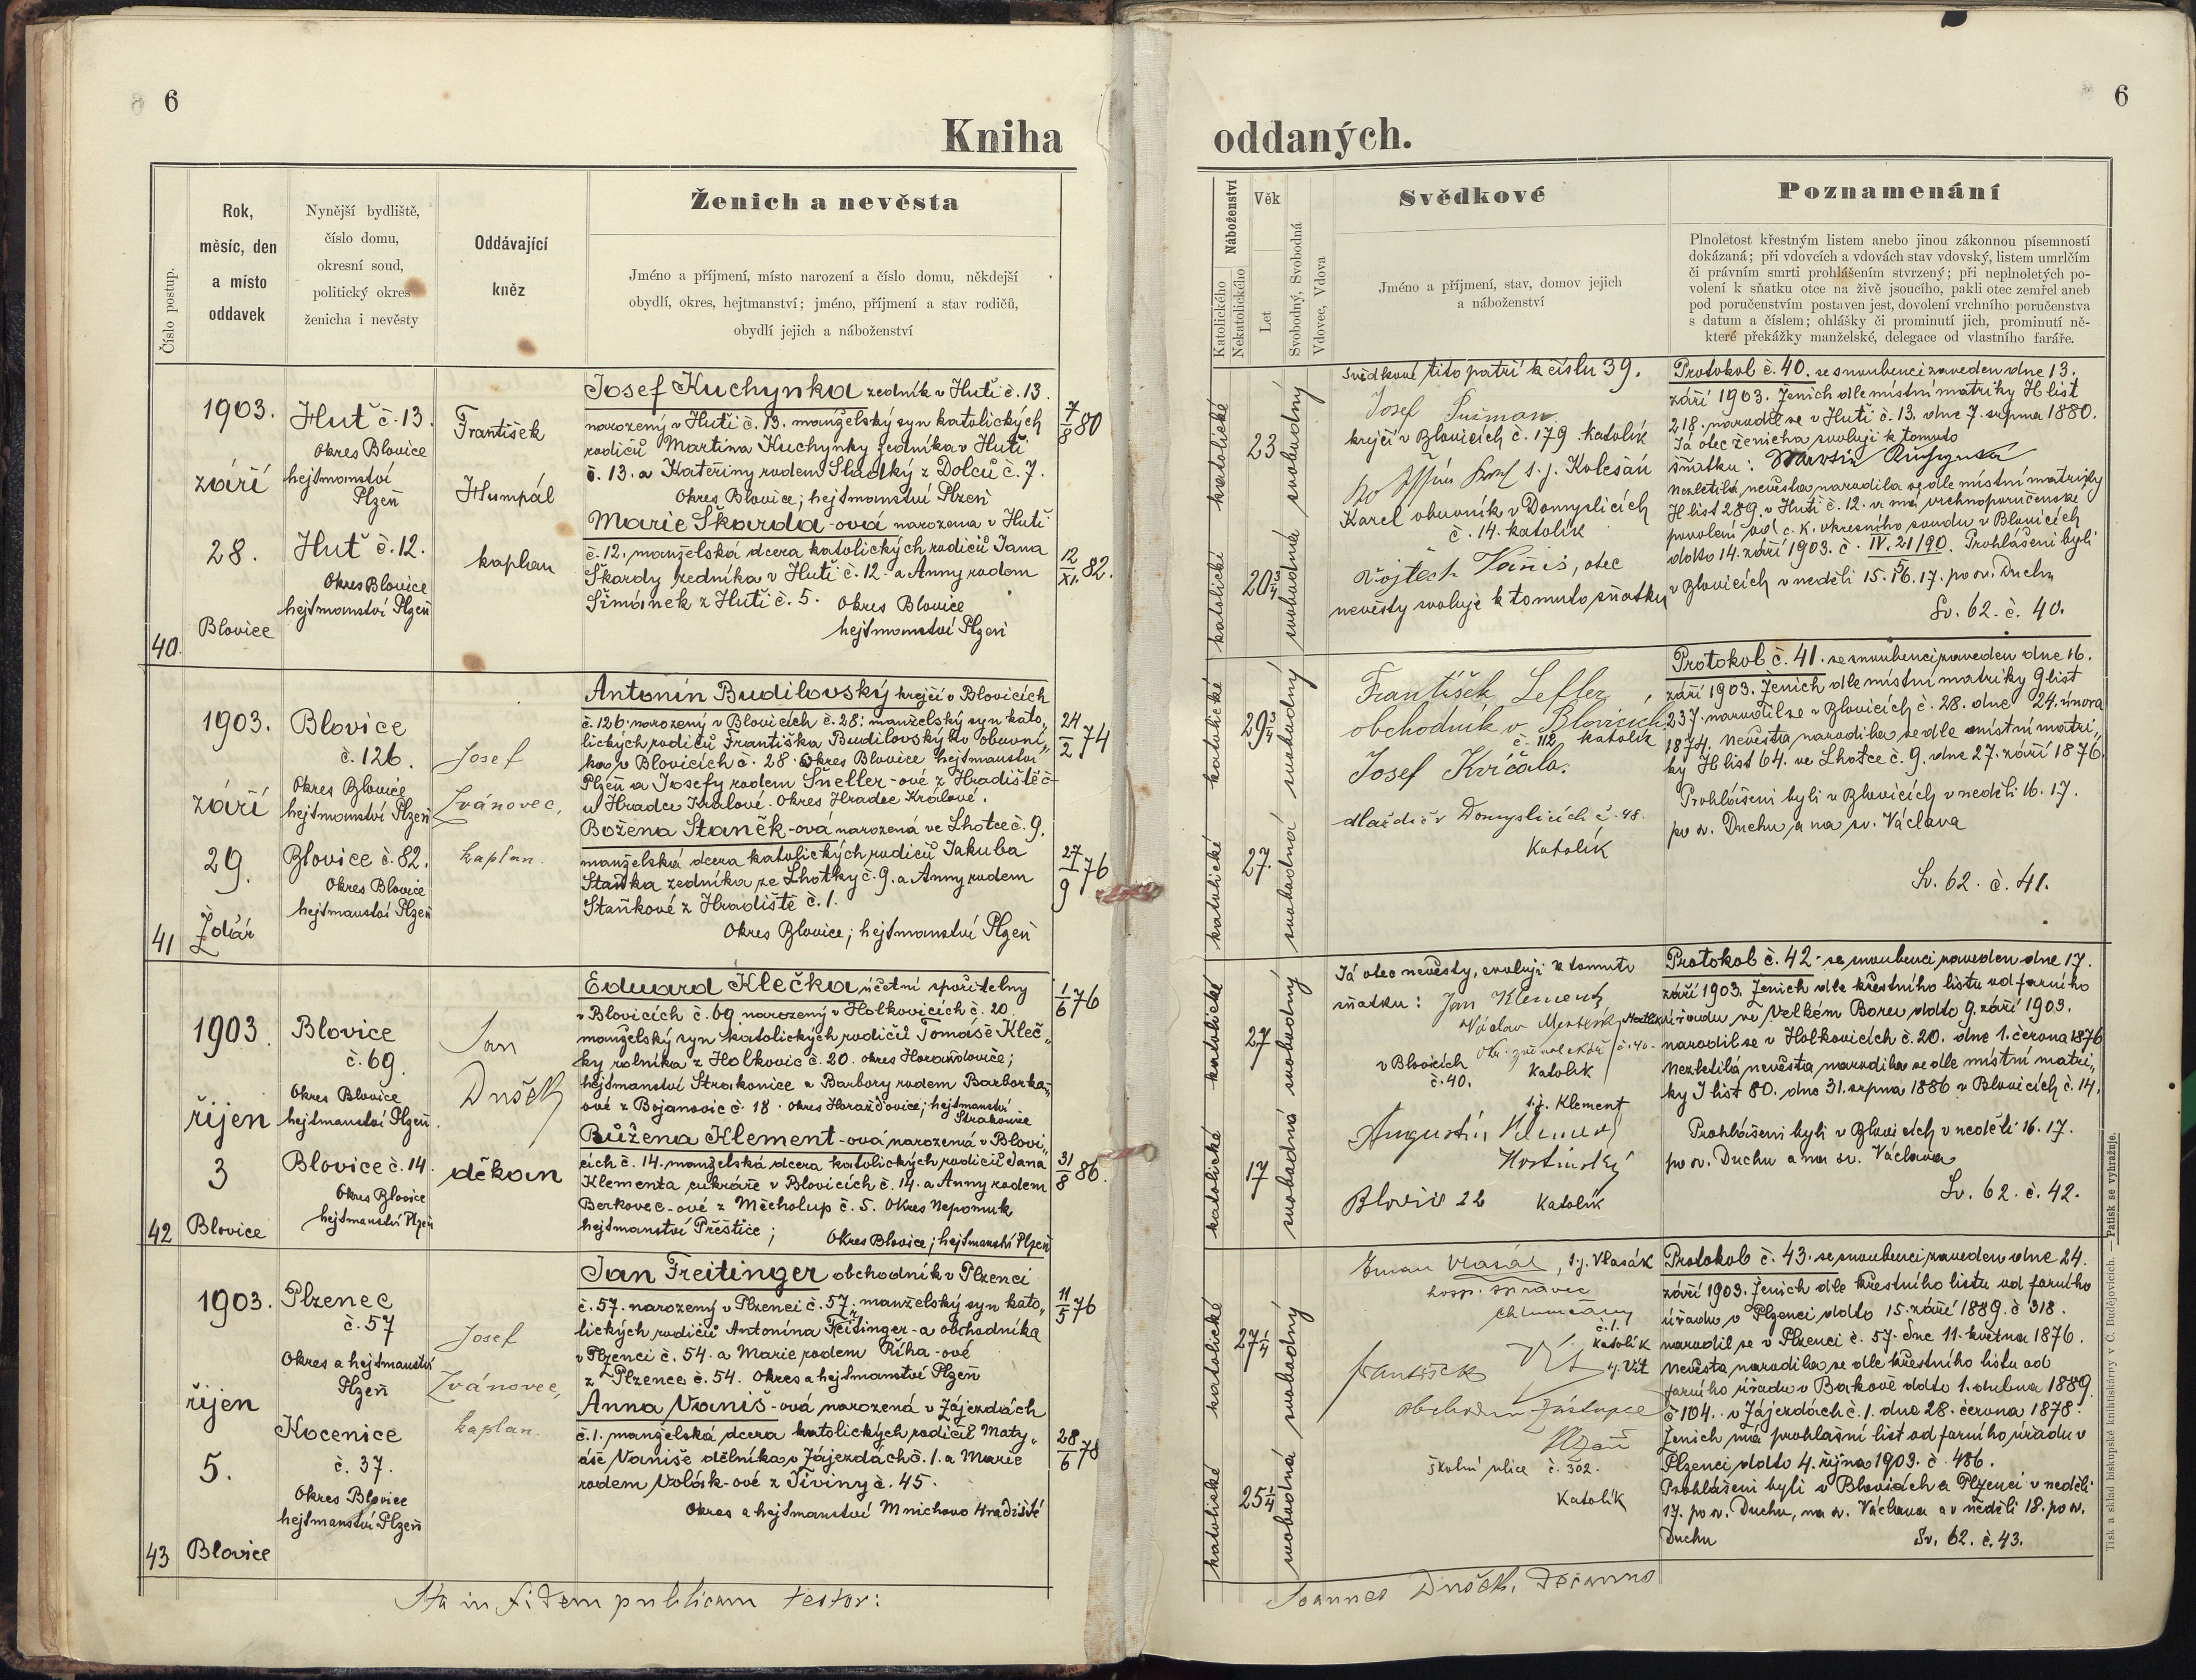 6
Kniha
Číslo postup.
Rok,
měsíc, den
a místo
oddavek
Nynější bydliště,
číslo domu,
okresní soud,
politický okres
ženicha i nevěsty
Oddávající
kněz
Ženich a nevěsta
Jméno a příjmení, místo narození a číslo domu, někdejší
obydlí, okres, hejtmanství; jméno, příjmení a stav rodičů,
obydlí jejich a náboženství
40.
1903.
září
28.
Blovice
Huť č. 13.
Okres Blovice
hejtmanství
Plzeň
Huť č. 12.
Okres Blovice
hejtmanství Plzeň
František
Humpál
kaplan
Josef Kuchynka zedník v Huti č. 13.
narozený v Huti č. 13. manželský syn katolických
rodičů Martina Kuchynky zedníka v Huti
č. 13. a Kateřiny rodem Sladký z Dolců č. 7.
Okres Blovice; hejtmanství Plzeň
Marie Škarda-ová narozena v Huti
č. 12. manželská dcera katolických rodičů Jana
Škardy zedníka v Huti č. 12. a Anny rodem
Šimánek z Huti č. 5. Okres Blovice
hejtmanství Plzeň
7/8 80
12/XI. 82.
41
1903.
září
29.
Ždár
Blovice
č. 126.
Okres Blovice
hejtmanství Plzeň
Blovice č. 82.
Okres Blovice
hejtmanství Plzeň
Josef
Zvánovec,
kaplan.
Antonín Budilovský krejčí v Blovicích
č. 126. narozený v Blovicích č. 28. manželský syn kato„
lických rodičů Františka Budilovského obuvní„
ka v Blovicích č. 28. Okres Blovice hejtmanství
Plzeň a Josefy rodem Šneller-ové z Hradiště č.
u Hradce Králové. Okres Hradec Králové.
Božena Staněk-ová narozená ve Lhotce č. 9.
manželská dcera katolických rodičů Jakuba
Staňka zedníka ze Lhotky č. 9. a Anny rodem
Staňkové z Hradiště č. 1.
Okres Blovice; hejtmanství Plzeň
24/2 74
27/9 76
42
1903.
říjen
3
Blovice
Blovice
č. 69.
Okres Blovice
hejtmanství Plzeň.
Blovice č. 14.
Okres Blovice
hejtmanství Plzeň
Jan
Dušek
děkan
Eduard Klečka účetní spořitelny
v Blovicích č. 69 narozený v Holkovicích č. 20
manželský syn katolických rodičů Tomáše Kleč„
ky rolníka z Holkovic č. 20. okres Horažďovice;
hejtmanství Strakonice a Barbory rodem Barborka„
ové z Bojanovic č. 18. okres Horažďovice; hejtmanství
Strakonice
Růžena Klement-ová narozená v Blovi„
cích č. 14. manželská dcera katolických rodičů Jana
Klementa cukráře v Blovicích č. 14. a Anny rodem
Berkovec-ové z Měcholup č. 5. Okres Nepomuk
hejtmanství Přeštice; Okres Blovice; hejtmanství Plzeň
1/6 76
31/8 86.
43
1903.
říjen
5.
Blovice
Plzenec
č. 57
Okres a hejtmanství
Plzeň
Kocenice
č. 37.
Okres Blovice
hejtmanství Plzeň
Josef
Zvánovec,
kaplan.
Jan Freitinger obchodník v Plzenci
č. 57. narozený v Plzenci č. 57; manželský syn kato„
lických rodičů Antonína Freitinger-a obchodníka
v Plzenci č. 54. a Marie rodem Říha-ové
z Plzence č. 54. Okres a hejtmanství Plzeň
Anna Vaniš-ová narozená v Zájezdách
č. 1. manželská dcera katolických rodičů Maty„
áše Vaniše dělníka v Zájezdách č. 1. a Marie
rodem Volák-ové z Jiviny č. 45.
Okres a hejtmanství Mnichovo Hradiště
11/5 76
28/6 78
Ita in fidem publicam testor:
6
oddaných.
Náboženství
Katolického
Nekatolického
Věk
Let
Svobodný, Svobodná
Vdovec, Vdova
Svědkové
Jméno a příjmení, stav, domov jejich
a náboženství
Poznamenání
Plnoletost křestným listem anebo jinou zákonnou písemností
dokázaná; při vdovcích a vdovách stav vdovský, listem umrlčím
či právním smrti prohlášením stvrzený; při neplnoletých po-
volení k sňatku otce na živě jsoucího, pakli otec zemřel aneb
pod poručenstvím postaven jest, dovolení vrchního poručenstva
s datum a číslem; ohlášky či prominutí jich, prominutí ně-
které překážky manželské, delegace od vlastního faráře.
katolické
23
svobodný
katolické
20 3/4
svobodná
Svědkové tito patří k číslu 39.
Josef Šusman
krejčí v Blovicích č. 179. katolík
s.j. Kolesán
Karel obuvník v Domyslicích
č. 14. katolík
Vojtěch Vaniš, otec
nevěsty svoluje k tomuto sňatku
Protokol č. 40. se snoubenci zaveden dne 13.
září 1903. Ženich dle místní matriky H list
218. narodil se v Huti č. 13. dne 7. srpna 1880.
Já otec ženicha svoluji k tomuto
sňatku: Martin Kuchynka
Nezletilá nevěsta narodila se dle místní matriky
H list 289. v Huti č. 12. a má vrchnoporučenské
povolení od c. k. okresního soudu v Blovicích
ddto 14. září 1903. č. IV. 21/90. Prohlášeni byli
v Blovicích v neděli 15. 16. 17. po sv. Duchu
Sv. 62. č. 40.
katolické
29 3/4
svobodný
katolické
27.
svobodná
František Lefler,
obchodník v Blovicích.
č. 112 katolík
Josef Kvíčala.
dlaždič v Domyslicích č. 48.
Katolík
Protokol č. 41. se snoubenci zaveden dne 16.
září 1903. Ženich dle místní matriky G list
237. narodil se v Blovicích č. 28. dne 24. února
1874. Nevěsta narodila se dle místní matri„
ky H list 64. ve Lhotce č. 9. dne 27. září 1876.
Prohlášeni byli v Blovicích v neděli 16. 17.
po sv. Duchu a na sv. Václava
Sv. 62. č. 41.
katolické
27
svobodný
katolické
17
svobodná
Já otec nevěsty, svoluji k tomuto
sňatku: Jan Klement
Václav
v Blovicích
č. 40.
katolík
s.j. Klement
Augustin Klement
Hostinský
Blovice 22 katolík
Protokol č. 42. se snoubenci zaveden dne 17.
září 1903. Ženich dle křestního listu od farního
úřadu ve Velkém Boru ddto 9. září 1903.
narodil se v Holkovicích č. 20. dne 1. června 1876
Nezletilá nevěsta narodila se dle místní matri„
ky I list 80. dne 31. srpna 1886 v Blovicích č. 14.
Prohlášeni byli v Blovicích v neděli 16. 17.
po sv. Duchu a na sv. Václava
Sv. 62. č. 42.
katolické
27 1/4
svobodný
katolické
25 1/4
svobodná
Eman Vlasák, s.j. Vlasák
hosp. správce
Chlumčany
č. 1.
Katolík
František Vít s.j. Vít
obchodní zástupce
Plzeň
Školní ulice č. 302.
Katolík
Protokol č. 43. se snoubenci zaveden dne 24.
září 1903. Ženich dle křestního listu od farního
úřadu v Plzenci ddto 15. září 1889. č 318.
narodil se v Plzenci č. 57. dne 11. května 1876.
Nevěsta narodila se dle křestního listu od
farního úřadu v Bakově ddto 1. dubna 1889.
č 104. v Zájezdách č. 1. dne 28. června 1878.
Ženich má prohlašní list od farního úřadu v
Plzenci ddto 4. října 1903. č. 486.
Prohlášeni byli v Blovicích a Plzenci v neděli
17. po sv. Duchu, na sv. Václava a v neděli 18. po sv.
Duchu Sv. 62. č. 43.
Joannes Dušek, Decanus
Tisk a sklad biskupské knihtiskárny v Č. Budějovicích. — Patisk se vyhražuje.